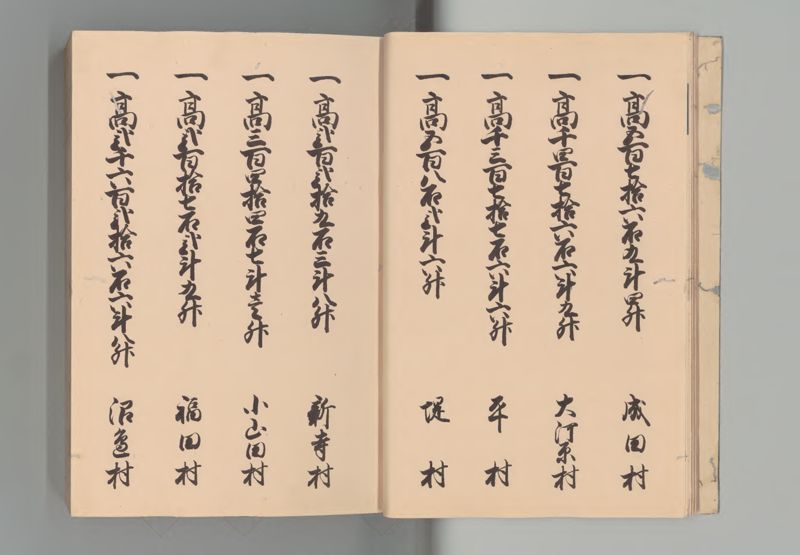 一高五百七拾六石九斗四升 成田村
一高千四百七拾六石六斗九升 大河原村
一高千三百七拾七石六斗六升 平村
一高五百八石弐斗六升 堤村
一高弐百弐拾九石三斗八升 新寺村
一高三百四拾四石七斗壱升 小山田村
一高弐百拾七石弐斗九升 福田村
一高弐千六百弐拾六石六斗八升 沼邉村